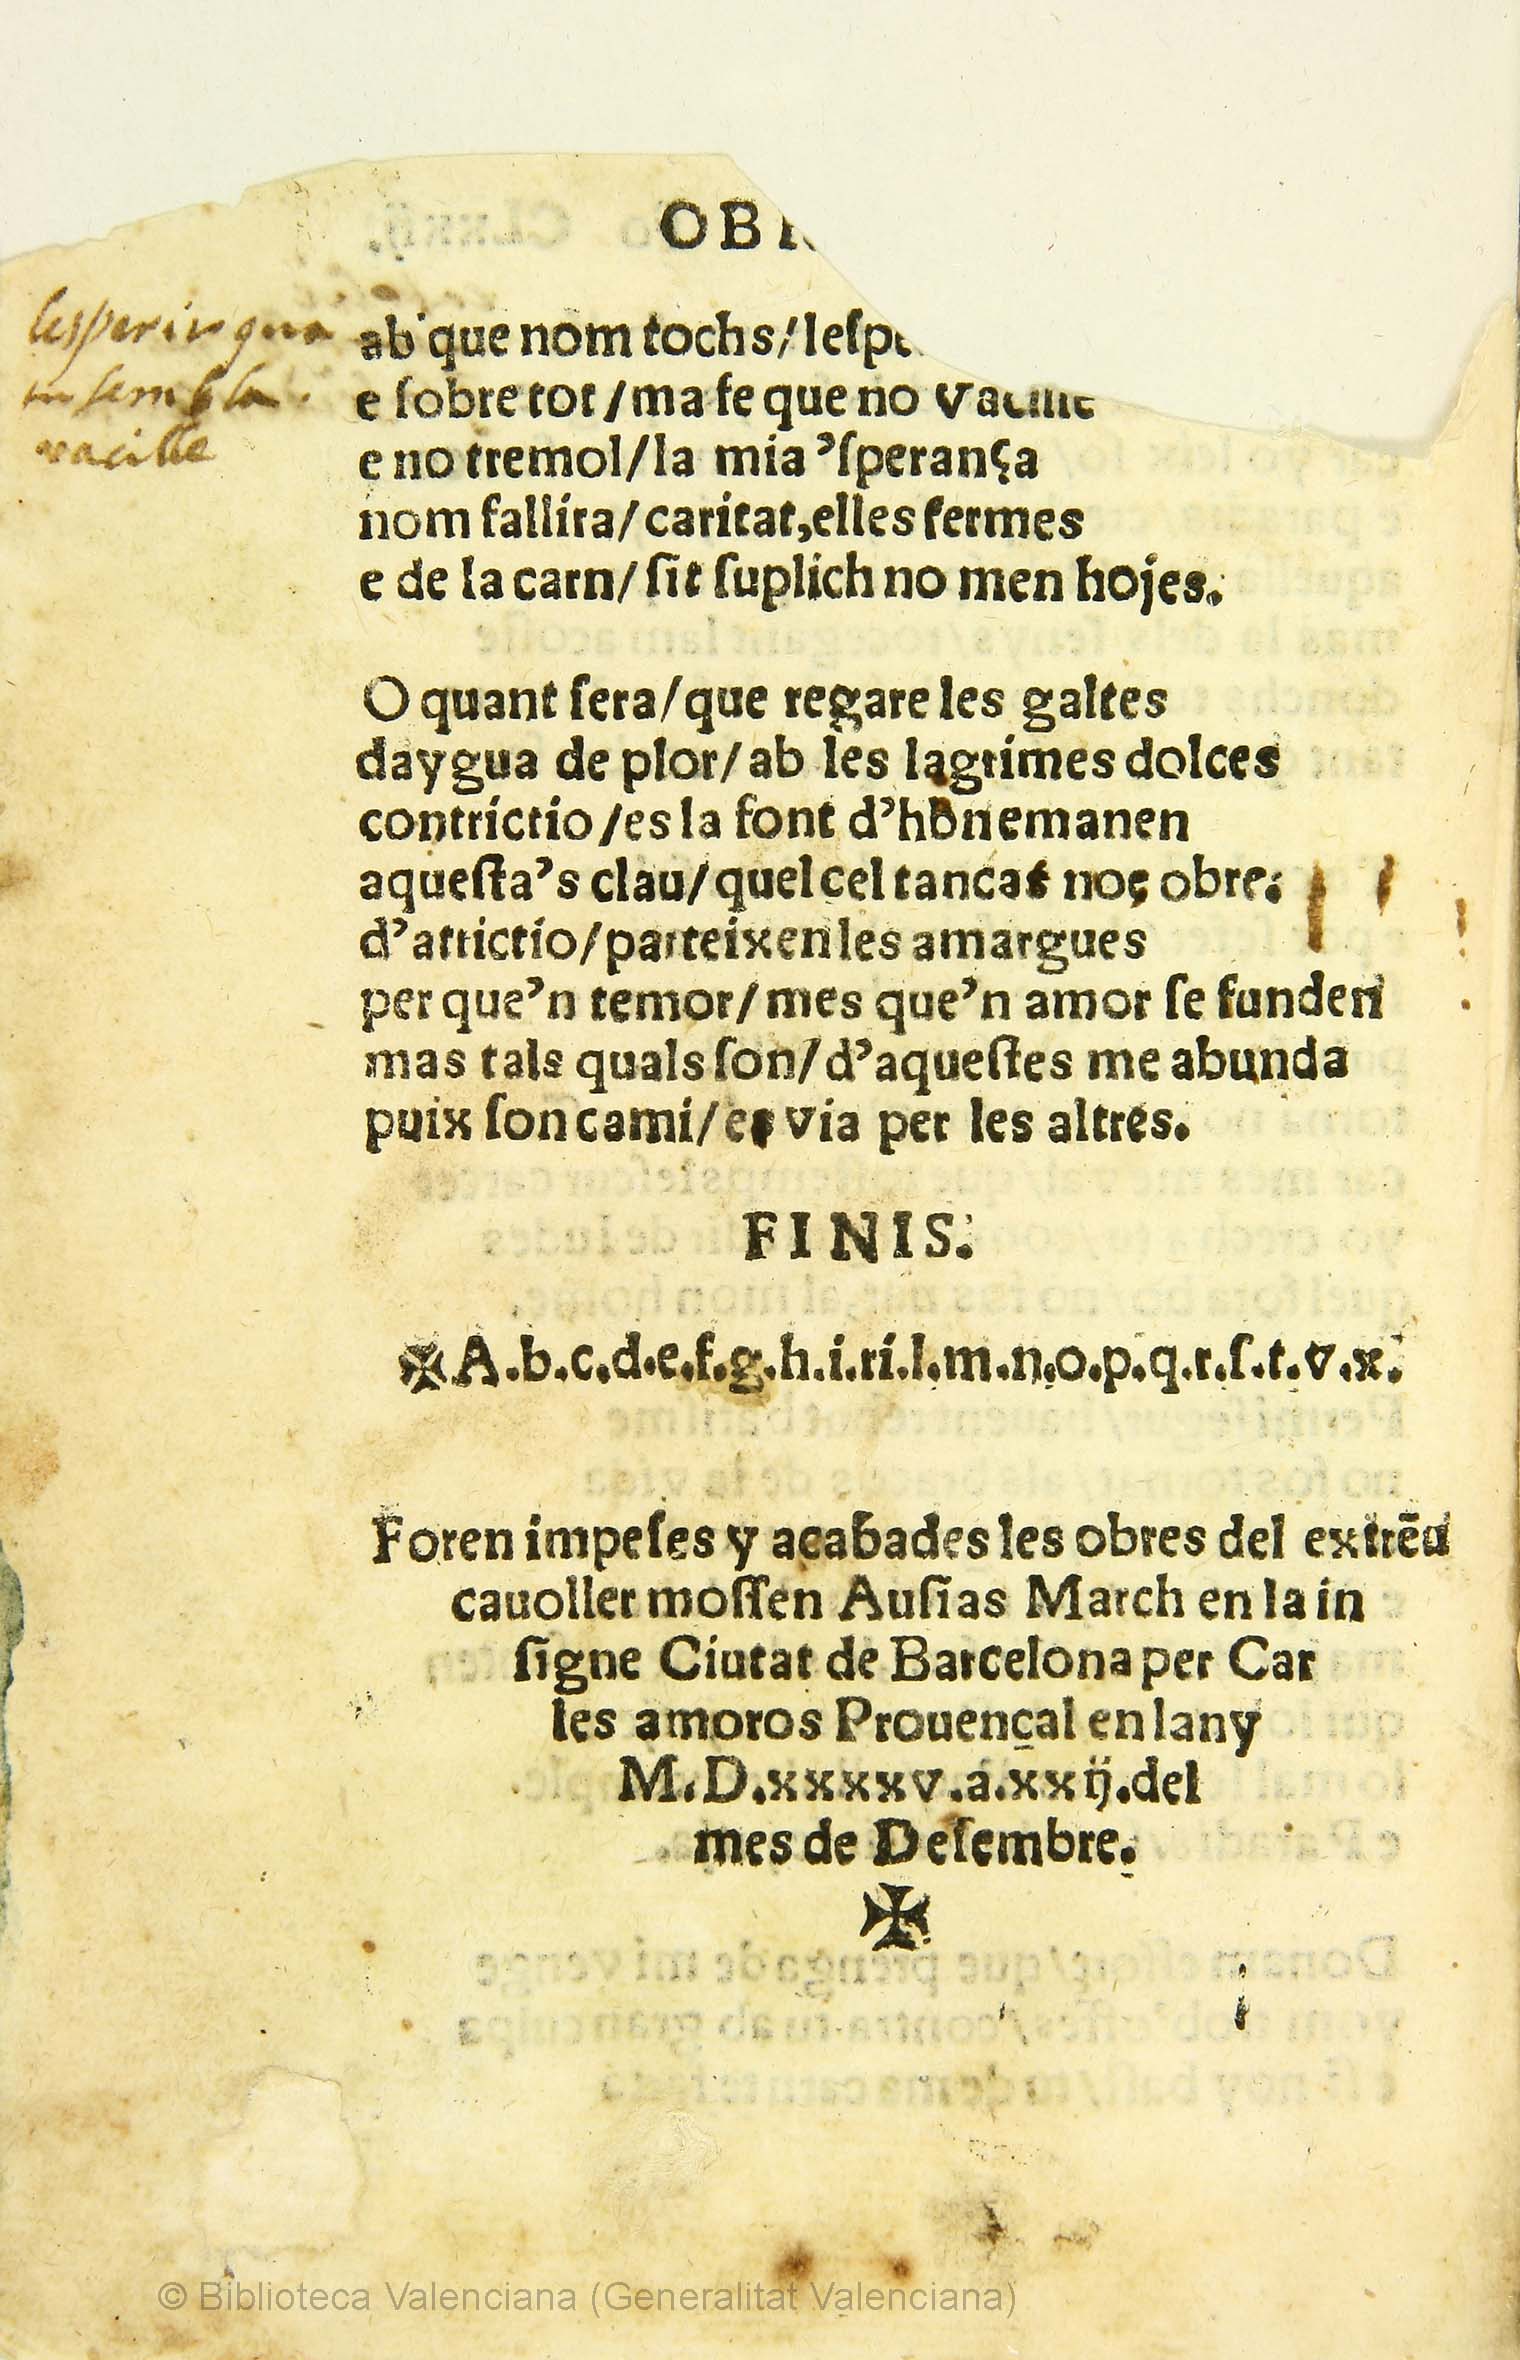 OBR
lesperit qua
m sembla
vacille
ab que nom tochs/leſpe
e ſobre tot/ma fe que no vacille
e no tremol/la mia ’ſperança
nom fallira/caritat,elles fermes
e de la carn/ſit ſuplich no men hojes.
O quant ſera/que regare les galtes
daygua de plor/ab les lagrimes dolces
contrictio/es la font d’hõnemanen
aqueſta’s clau/quel cel tancat noç obre.
d’attictio/parteixen les amargues
per que’n temor/mes que’n amor ſe funden
mas tals quals ſon/d’aqueſtes me abunda
puix ſon cami/e via per les altres.
FINIS.
✠A.b.c.d.e.f.g.h.i.ri.l.m.n.o.p.q.r.ſ.t.v.x.
Foren impeſes y acabades les obres del extrẽu
cauoller moſſen Auſias March en la in
ſigne Ciutat de Barcelona per Car
les amoros Prouençal en lany
M.D.xxxxv.a.xxij.del
mes de Deſembre.
✠
© Biblioteca Valenciana (Generalitat Valenciana)